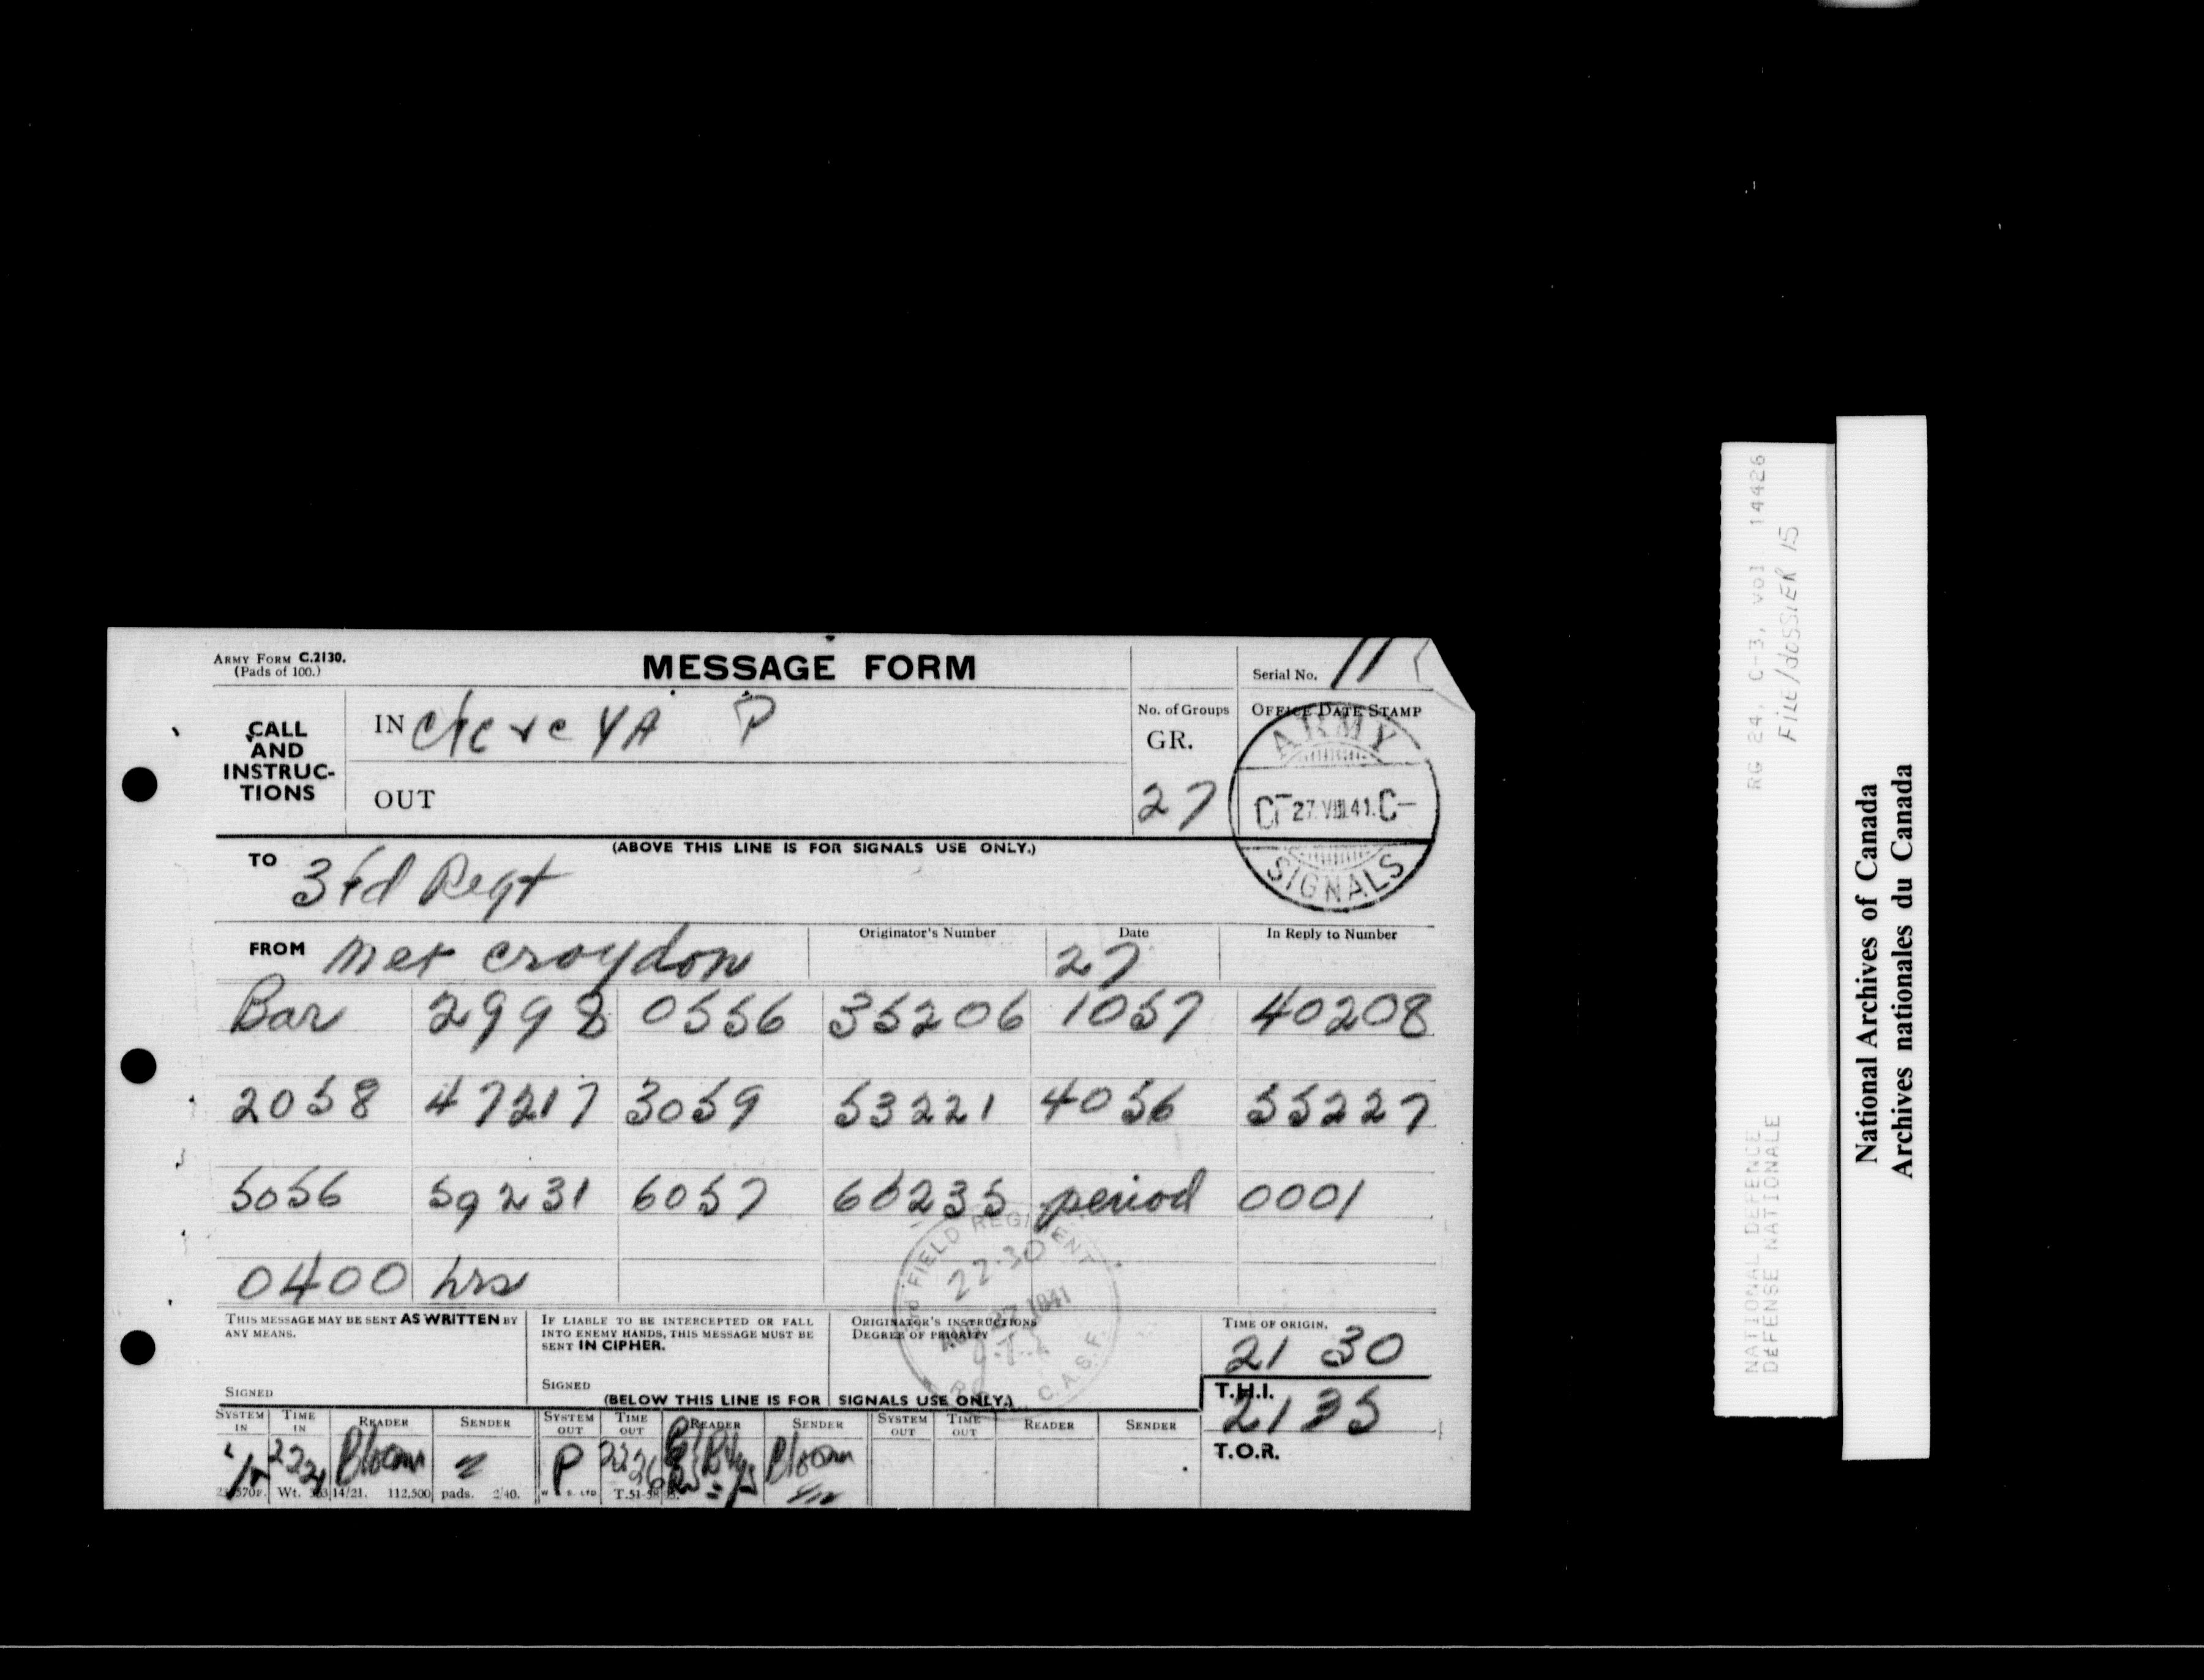 ARMY FORM C.2130.
(Pads of 100.)
MESSAGE FORM
Serial No. 11
CALL AND INSTRUC-TIONS
IN YA P
OUT
No. of Groups
GR.
27
OFFICE DATE STAMP
ARMY
27.VIII.41.
SIGNALS
(ABOVE THIS LINE IS FOR SIGNALS USE ONLY.)
TO 3fd Regt
FROM Met Croydon
Originator's Number
Date 27
In Reply to Number
Bar 2998 0556 35206 1057 40208
2058 47217 3059 53221 4056 55227
5056 59231 6057 66235 period 0001
0400 hrs
FIELD REGIMENT
22·30
AUG 27 1941
C.A.S.F.
THIS MESSAGE MAY BE SENT AS WRITTEN BY ANY MEANS.
SIGNED
IF LIABLE TO BE INTERCEPTED OR FALL INTO ENEMY HANDS, THIS MESSAGE MUST BE SENT IN CIPHER.
SIGNED
ORIGINATOR'S INSTRUCTIONS
DEGREE OF PRIORITY
TIME OF ORIGIN.
21 30
T.H.I.
2135
T.O.R.
(BELOW THIS LINE IS FOR SIGNALS USE ONLY.)
SYSTEM IN TIME IN READER SENDER SYSTEM OUT TIME OUT READER SENDER SYSTEM OUT TIME OUT READER SENDER
Bloom P 2226 Bloom
Wt. 14/21. 112,500 pads. 2/40.
RG 24, C-3, vol. 14426
FILE/dOSSIER 15
NATIONAL DEFENCE
DEFENSE NATIONALE
National Archives of Canada
Archives nationales du Canada